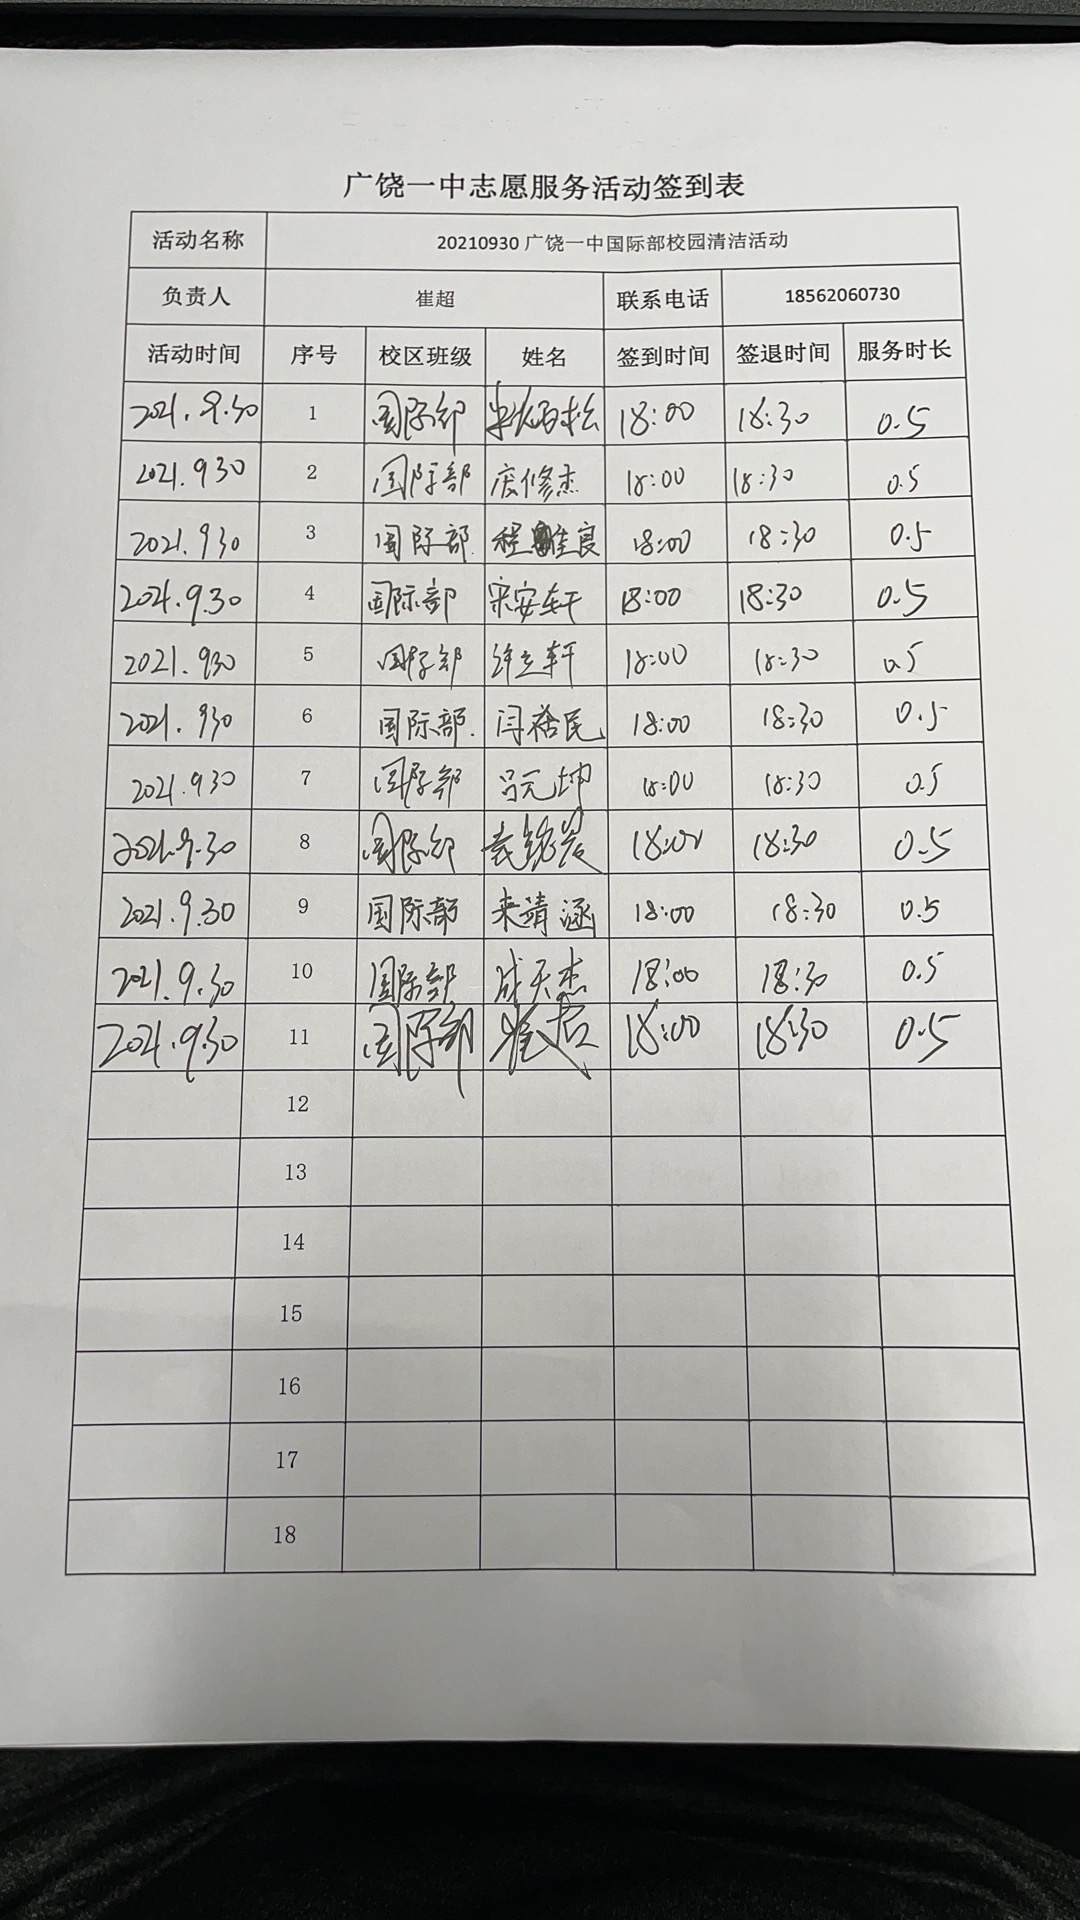 广饶一中志愿服务活动签到表
活动名称 20210930广饶一中国际部校园清洁活动
负责人 崔超 联系电话 18562060730
活动时间 序号 校区班级 姓名 签到时间 签退时间 服务时长
2021.9.30 1 国际部 18:00 18:30 0.5
2021.9.30 2 国际部 庞修杰 18:00 18:30 0.5
2021.9.30 3 国际部 程雅良 18:00 18:30 0.5
2021.9.30 4 国际部 宋安轩 18:00 18:30 0.5
2021.9.30 5 国际部 许立轩 18:00 18:30 0.5
2021.9.30 6 国际部 闫裕民 18:00 18:30 0.5
2021.9.30 7 国际部 吕元坤 18:00 18:30 0.5
2021.9.30 8 国际部 18:00 18:30 0.5
2021.9.30 9 国际部 来清涵 18:00 18:30 0.5
2021.9.30 10 国际部 成天杰 18:00 18:30 0.5
2021.9.30 11 国际部 18:00 18:30 0.5
12
13
14
15
16
17
18